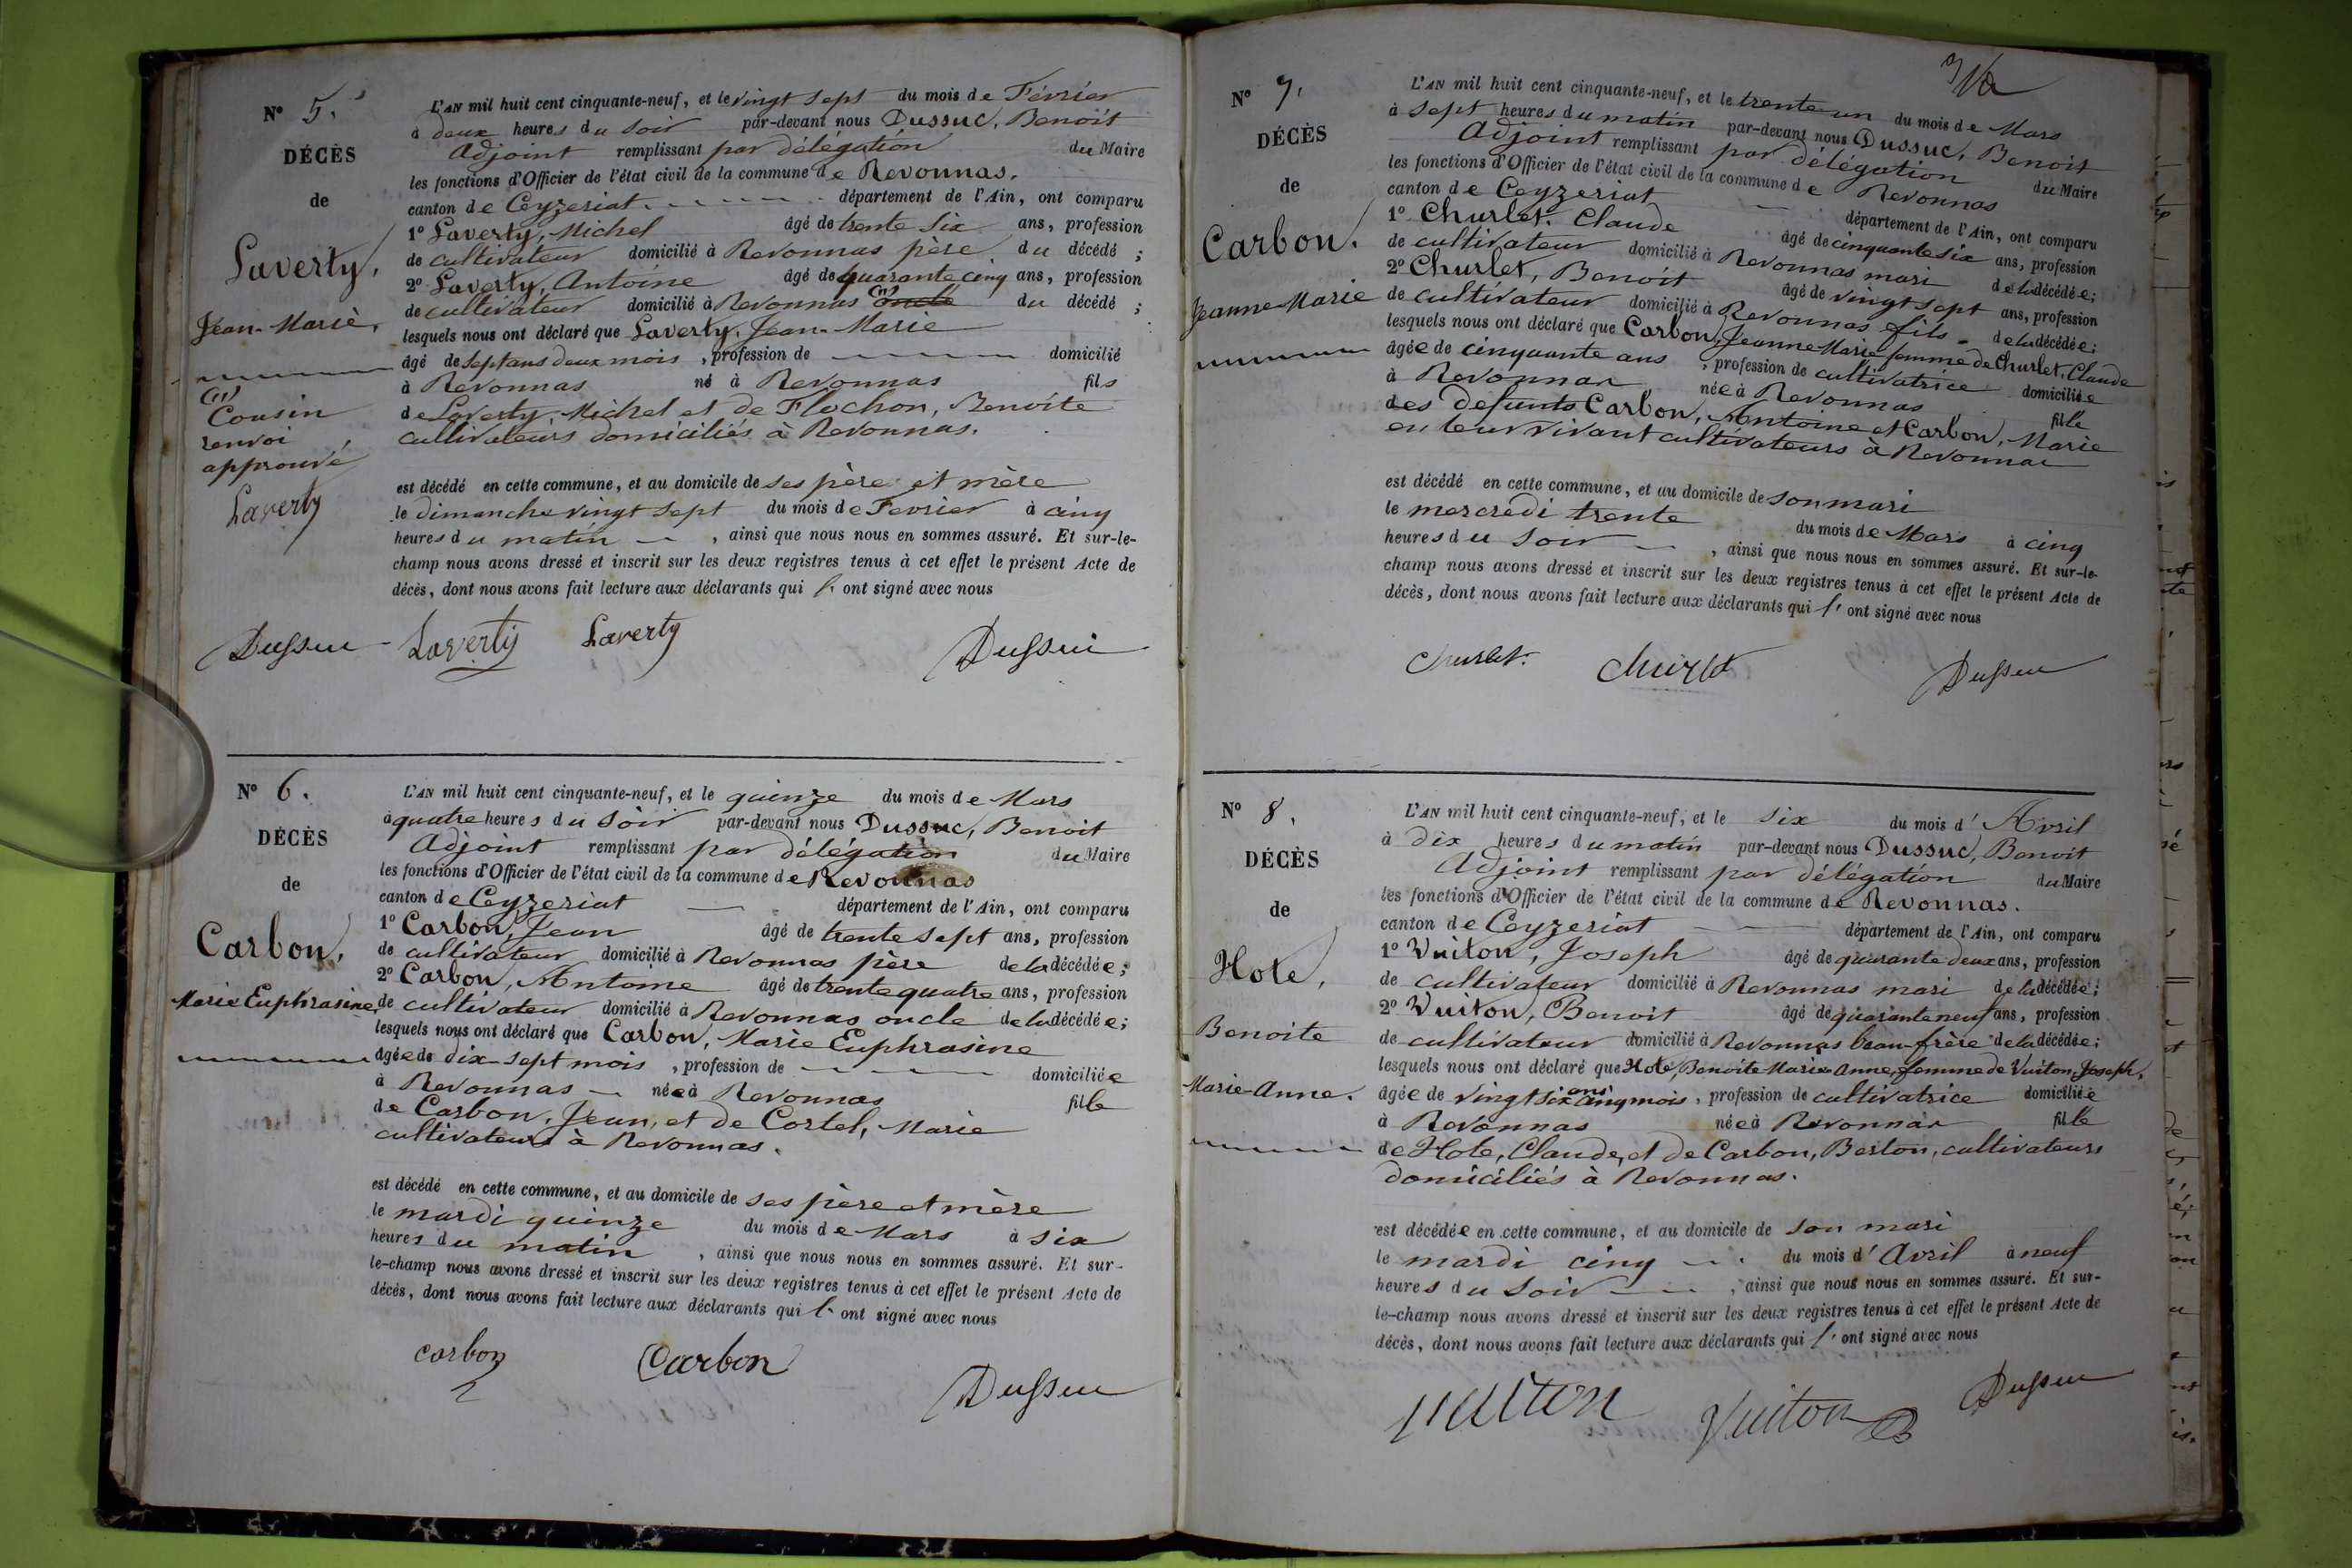 N° 5.
DÉCÈS
de
Laverty,
Jean-Marie.
(1)
Cousin
renvoi
approuvé
Laverty
L'AN mil huit cent cinquante-neuf, et le vingt sept du mois de Février
à deux heures du soir par-devant nous Dussuc, Benoit
Adjoint remplissant par délégation du Maire
les fonctions d'Officier de l'état civil de la commune de Revonnas.
canton de Ceyzeriat département de l'Ain, ont comparu
1° Laverty, Michel âgé de trente six ans, profession
de cultivateur domicilié à Revonnas père du décédé ;
2° Laverty, Antoine âgé de quarante cinq ans, profession
de cultivateur domicilié à Revonnas (1) oncle du décédé ;
lesquels nous ont déclaré que Laverty, Jean-Marie
âgé de sept ans deux mois , profession de domicilié
à Revonnas né à Revonnas fils
de Laverty, Michel et de Flochon, Benoite
cultivateurs domiciliés à Revonnas.
est décédé en cette commune, et au domicile de ses père et mère
le dimanche vingt sept du mois de Fevrier à cinq
heures du matin , ainsi que nous nous en sommes assuré. Et sur-le-
champ nous avons dressé et inscrit sur les deux registres tenus à cet effet le présent Acte de
décès, dont nous avons fait lecture aux déclarants qui l' ont signé avec nous
Dussuc Laverty Laverty Dussuc
N° 6.
DÉCÈS
de
Carbon,
Marie Euphrasine
L'AN mil huit cent cinquante-neuf, et le quinze du mois de Mars
à quatre heures du soir par-devant nous Dussuc, Benoit
Adjoint remplissant par délégation du Maire
les fonctions d'Officier de l'état civil de la commune de Revonnas
canton de Ceyzeriat département de l'Ain, ont comparu
1° Carbon, Jean âgé de trente sept ans, profession
de cultivateur domicilié à Revonnas père de la décédée ;
2° Carbon, Antoine âgé de trente quatre ans, profession
de cultivateur domicilié à Revonnas oncle de la décédée ;
lesquels nous ont déclaré que Carbon, Marie Euphrasine
âgée de dix-sept mois , profession de domiciliée
à Revonnas née à Revonnas fille
de Carbon, Jean, et de Cortel, Marie
cultivateurs à Revonnas.
est décédé en cette commune, et au domicile de ses père et mère
le mardi quinze du mois de Mars à six
heures du matin , ainsi que nous nous en sommes assuré. Et sur-
le-champ nous avons dressé et inscrit sur les deux registres tenus à cet effet le présent Acte de
décès, dont nous avons fait lecture aux déclarants qui l' ont signé avec nous
carbon Carbon Dussuc
N° 7.
DÉCÈS
de
Carbon.
Jeanne-Marie
L'AN mil huit cent cinquante-neuf, et le trente un du mois de Mars
à sept heures du matin par-devant nous Dussuc, Benoit
Adjoint remplissant par délégation du Maire
les fonctions d'Officier de l'état civil de la commune de Revonnas
canton de Ceyzeriat département de l'Ain, ont comparu
1° Churlet, Claude âgé de cinquante six ans, profession
de cultivateur domicilié à Revonnas mari de la décédée ;
2° Churlet, Benoit âgé de vingt sept ans, profession
de cultivateur domicilié à Revonnas fils de la décédée ;
lesquels nous ont déclaré que Carbon, Jeanne Marie femme de Churlet, Claude
âgée de cinquante ans , profession de cultivatrice domiciliée
à Revonnas née à Revonnas fille
des defunts Carbon, Antoine et Carbon, Marie
en leur vivant cultivateurs à Revonnas
est décédé en cette commune, et au domicile de son mari
le mercredi trente du mois de Mars à cinq
heures du soir , ainsi que nous nous en sommes assuré. Et sur-le-
champ nous avons dressé et inscrit sur les deux registres tenus à cet effet le présent Acte de
décès, dont nous avons fait lecture aux déclarants qui l' ont signé avec nous
Churlet. Churlet Dussuc
N° 8.
DÉCÈS
de
Hote,
Benoite
Marie-Anne.
L'AN mil huit cent cinquante-neuf, et le six du mois d'Avril
à dix heures du matin par-devant nous Dussuc, Benoit
Adjoint remplissant par délégation du Maire
les fonctions d'Officier de l'état civil de la commune de Revonnas.
canton de Ceyzeriat département de l'Ain, ont comparu
1° Vuiton, Joseph âgé de quarante deux ans, profession
de cultivateur domicilié à Revonnas mari de la décédée ;
2° Vuiton, Benoit âgé de quarante neuf ans, profession
de cultivateur domicilié à Revonnas beau-frère de la décédée ;
lesquels nous ont déclaré que Hote, Benoite Marie-Anne, femme de Vuiton, Joseph,
âgée de vingt six ans cinq mois , profession de cultivatrice domiciliée
à Revonnas née à Revonnas fille
de Hote, Claude, et de Carbon, Berton, cultivateurs
domiciliés à Revonnas.
est décédée en cette commune, et au domicile de son mari
le mardi cinq du mois d'Avril à neuf
heures du soir , ainsi que nous nous en sommes assuré. Et sur-
le-champ nous avons dressé et inscrit sur les deux registres tenus à cet effet le présent Acte de
décès, dont nous avons fait lecture aux déclarants qui l' ont signé avec nous
Vuiton Vuiton B Dussuc